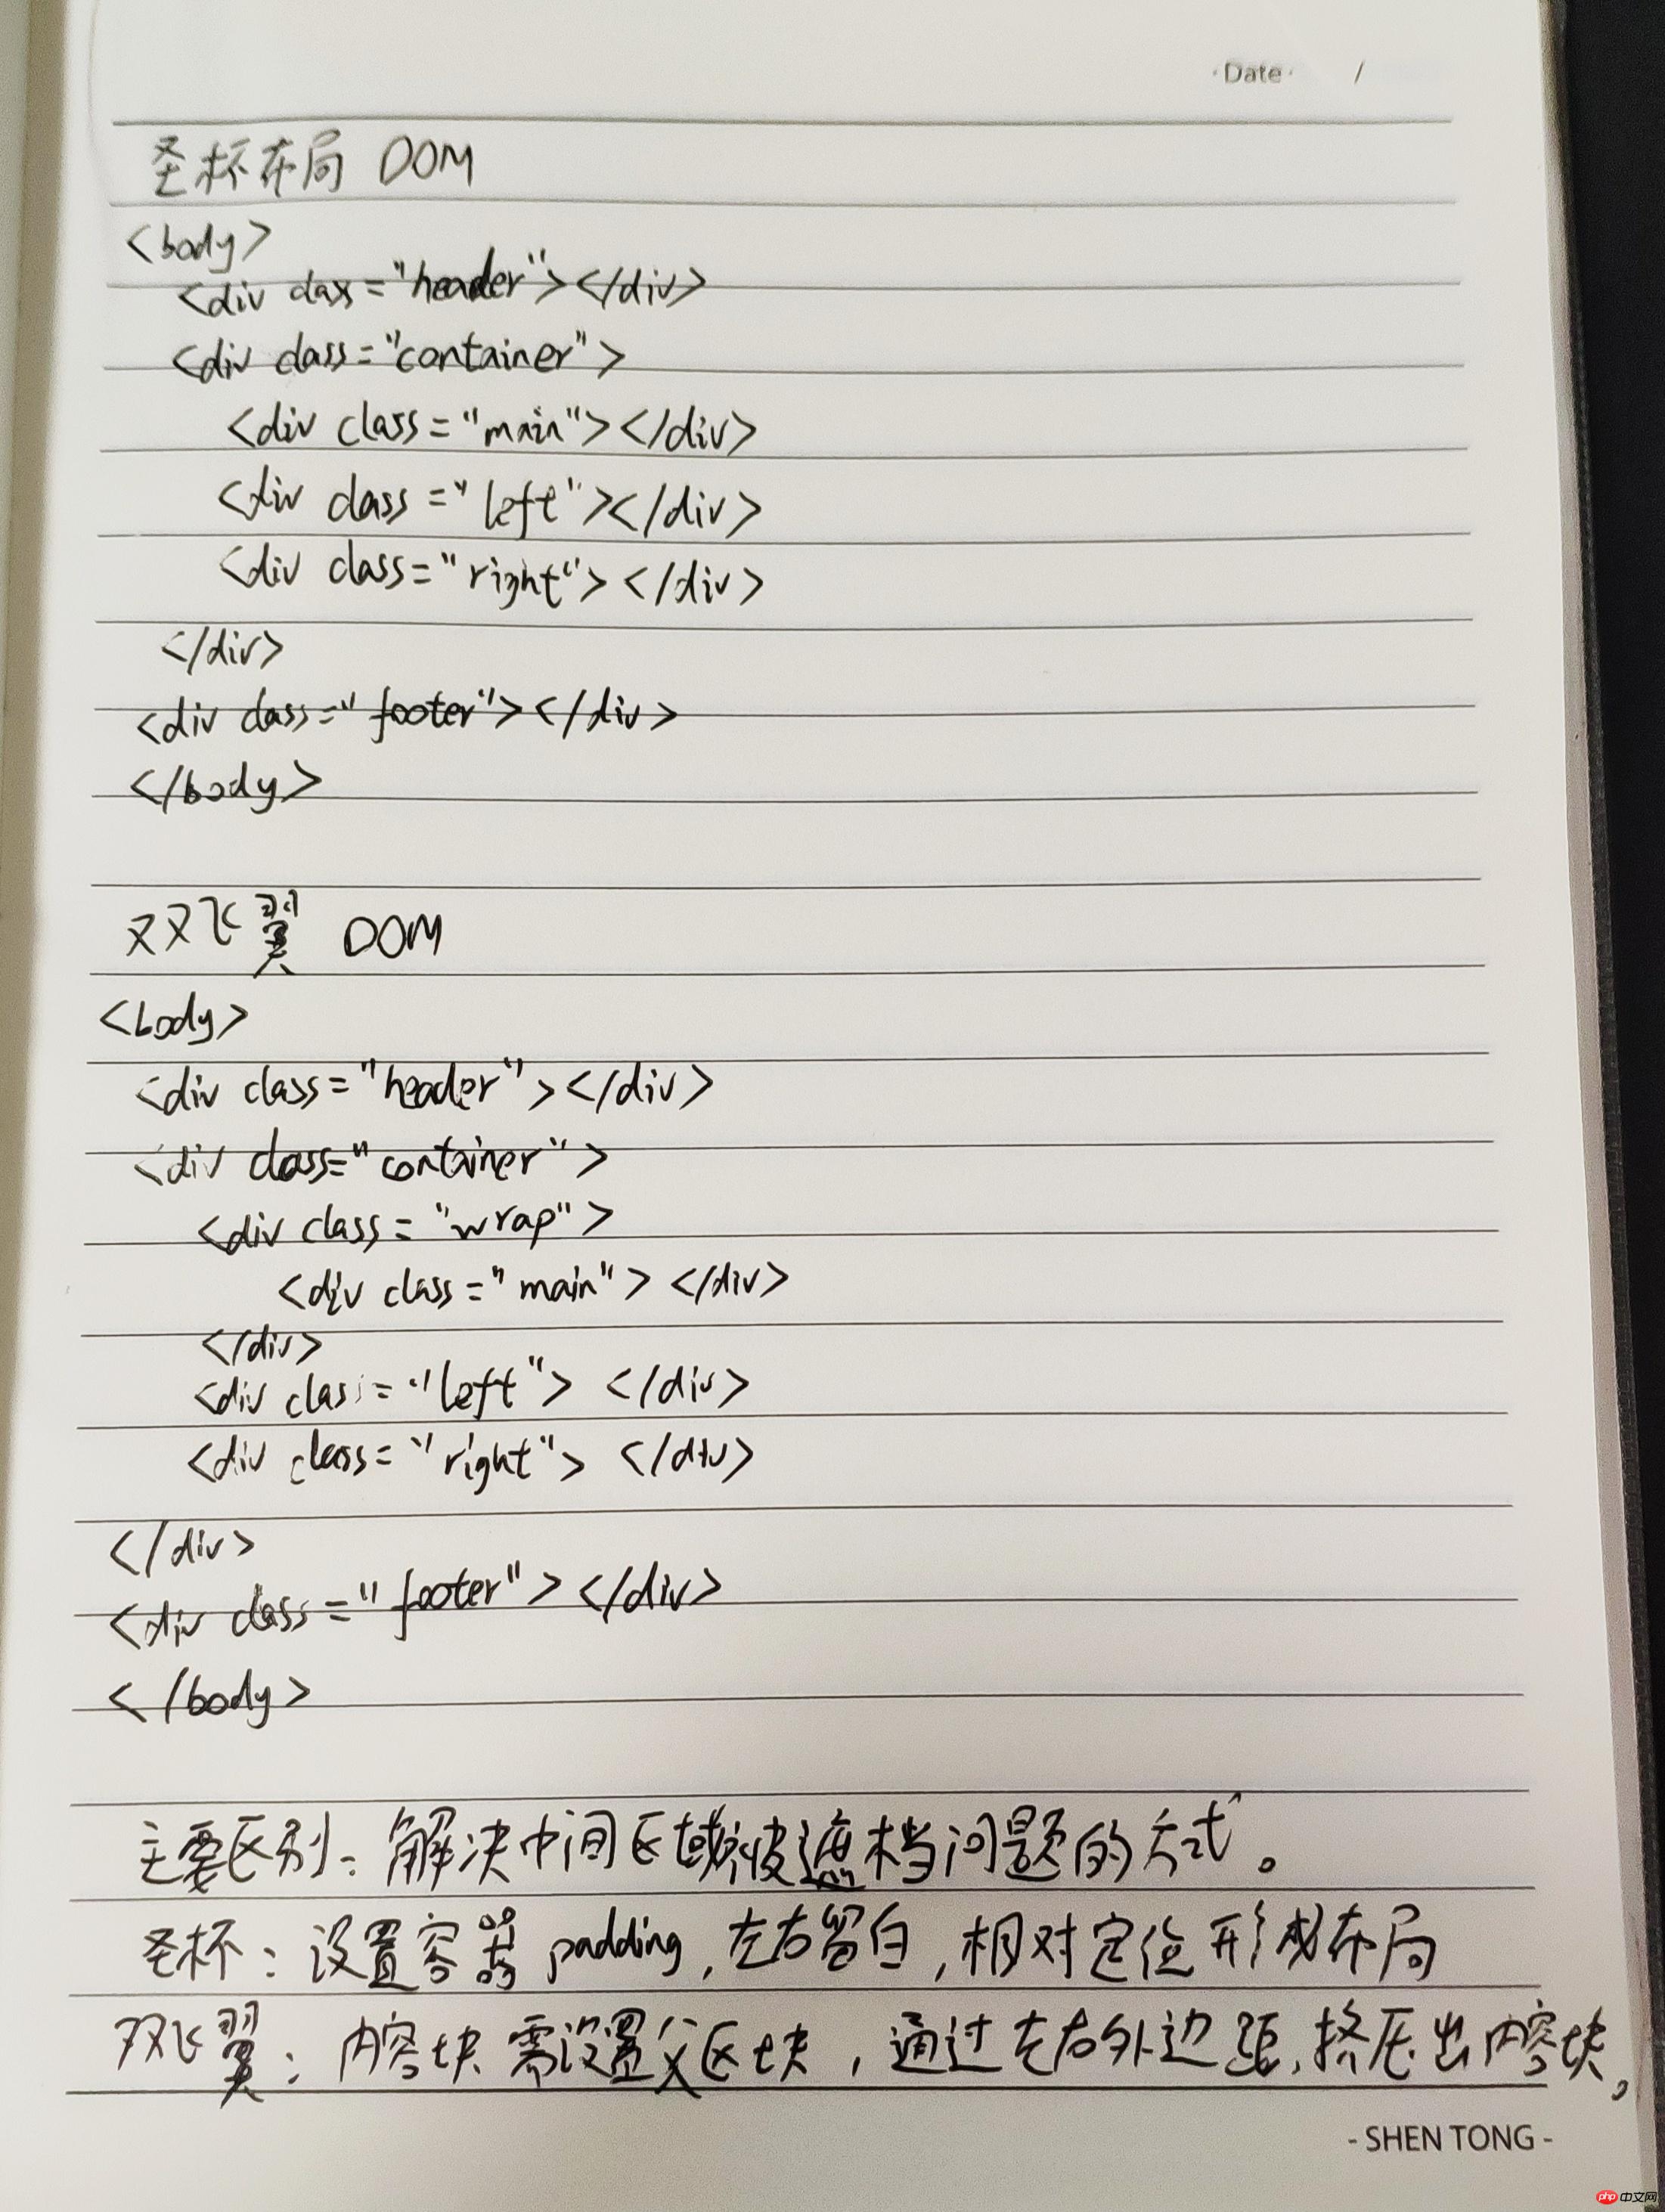 ·Date· /
圣杯布局 DOM
<body>
<div class="header"></div>
<div class="container">
<div class="main"></div>
<div class="left"></div>
<div class="right"></div>
</div>
<div class="footer"></div>
</body>
双飞翼 DOM
<body>
<div class="header"></div>
<div class="container">
<div class="wrap">
<div class="main"></div>
</div>
<div class="left"></div>
<div class="right"></div>
</div>
<div class="footer"></div>
</body>
主要区别：解决中间区域被遮档问题的方式。
圣杯：设置容器 padding，左右留白，相对定位形成布局
双飞翼：内容块需设置父区块，通过左右外边距，挤压出内容块。
- SHEN TONG -
php 中文网